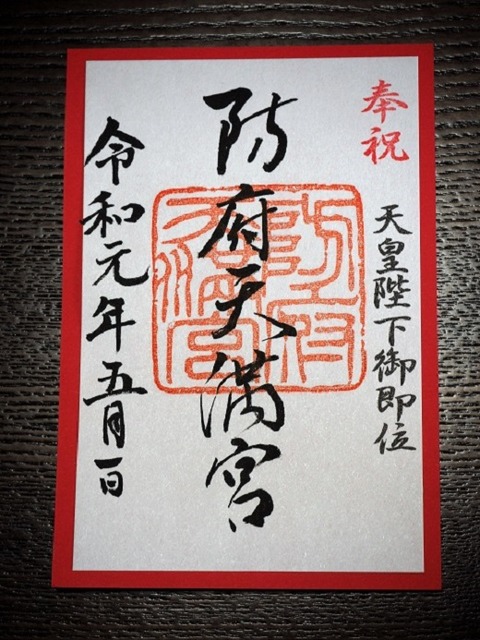 奉祝
天皇陛下御即位
防府天満宮
防府天満宮
令和元年五月一日